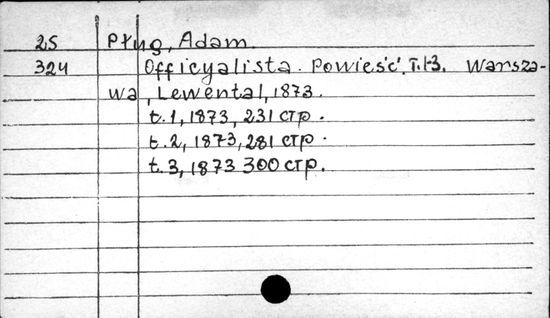 25 Pług, Adam.
324 Officyalista. Powieść. T.1-3. Warsza-
wa, Lewental, 1873.
t.1, 1873, 231 стр.
t.2, 1873, 281 стр.
t.3, 1873 300 стр.